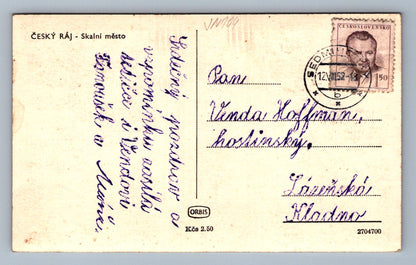 ČESKÝ RÁJ - Skalní město
Srdečný pozdrav a
vzpomínku zasílá
i Vendovi
Fanoušek a
ČESKOSLOVENSKO
1.50
SEDMIHORKY
12.VIII.52-18
b
Pan
Venda Hoffman,
hostinský.
Lázeňská
Kladno
ORBIS
Kčs 2.50
2704700